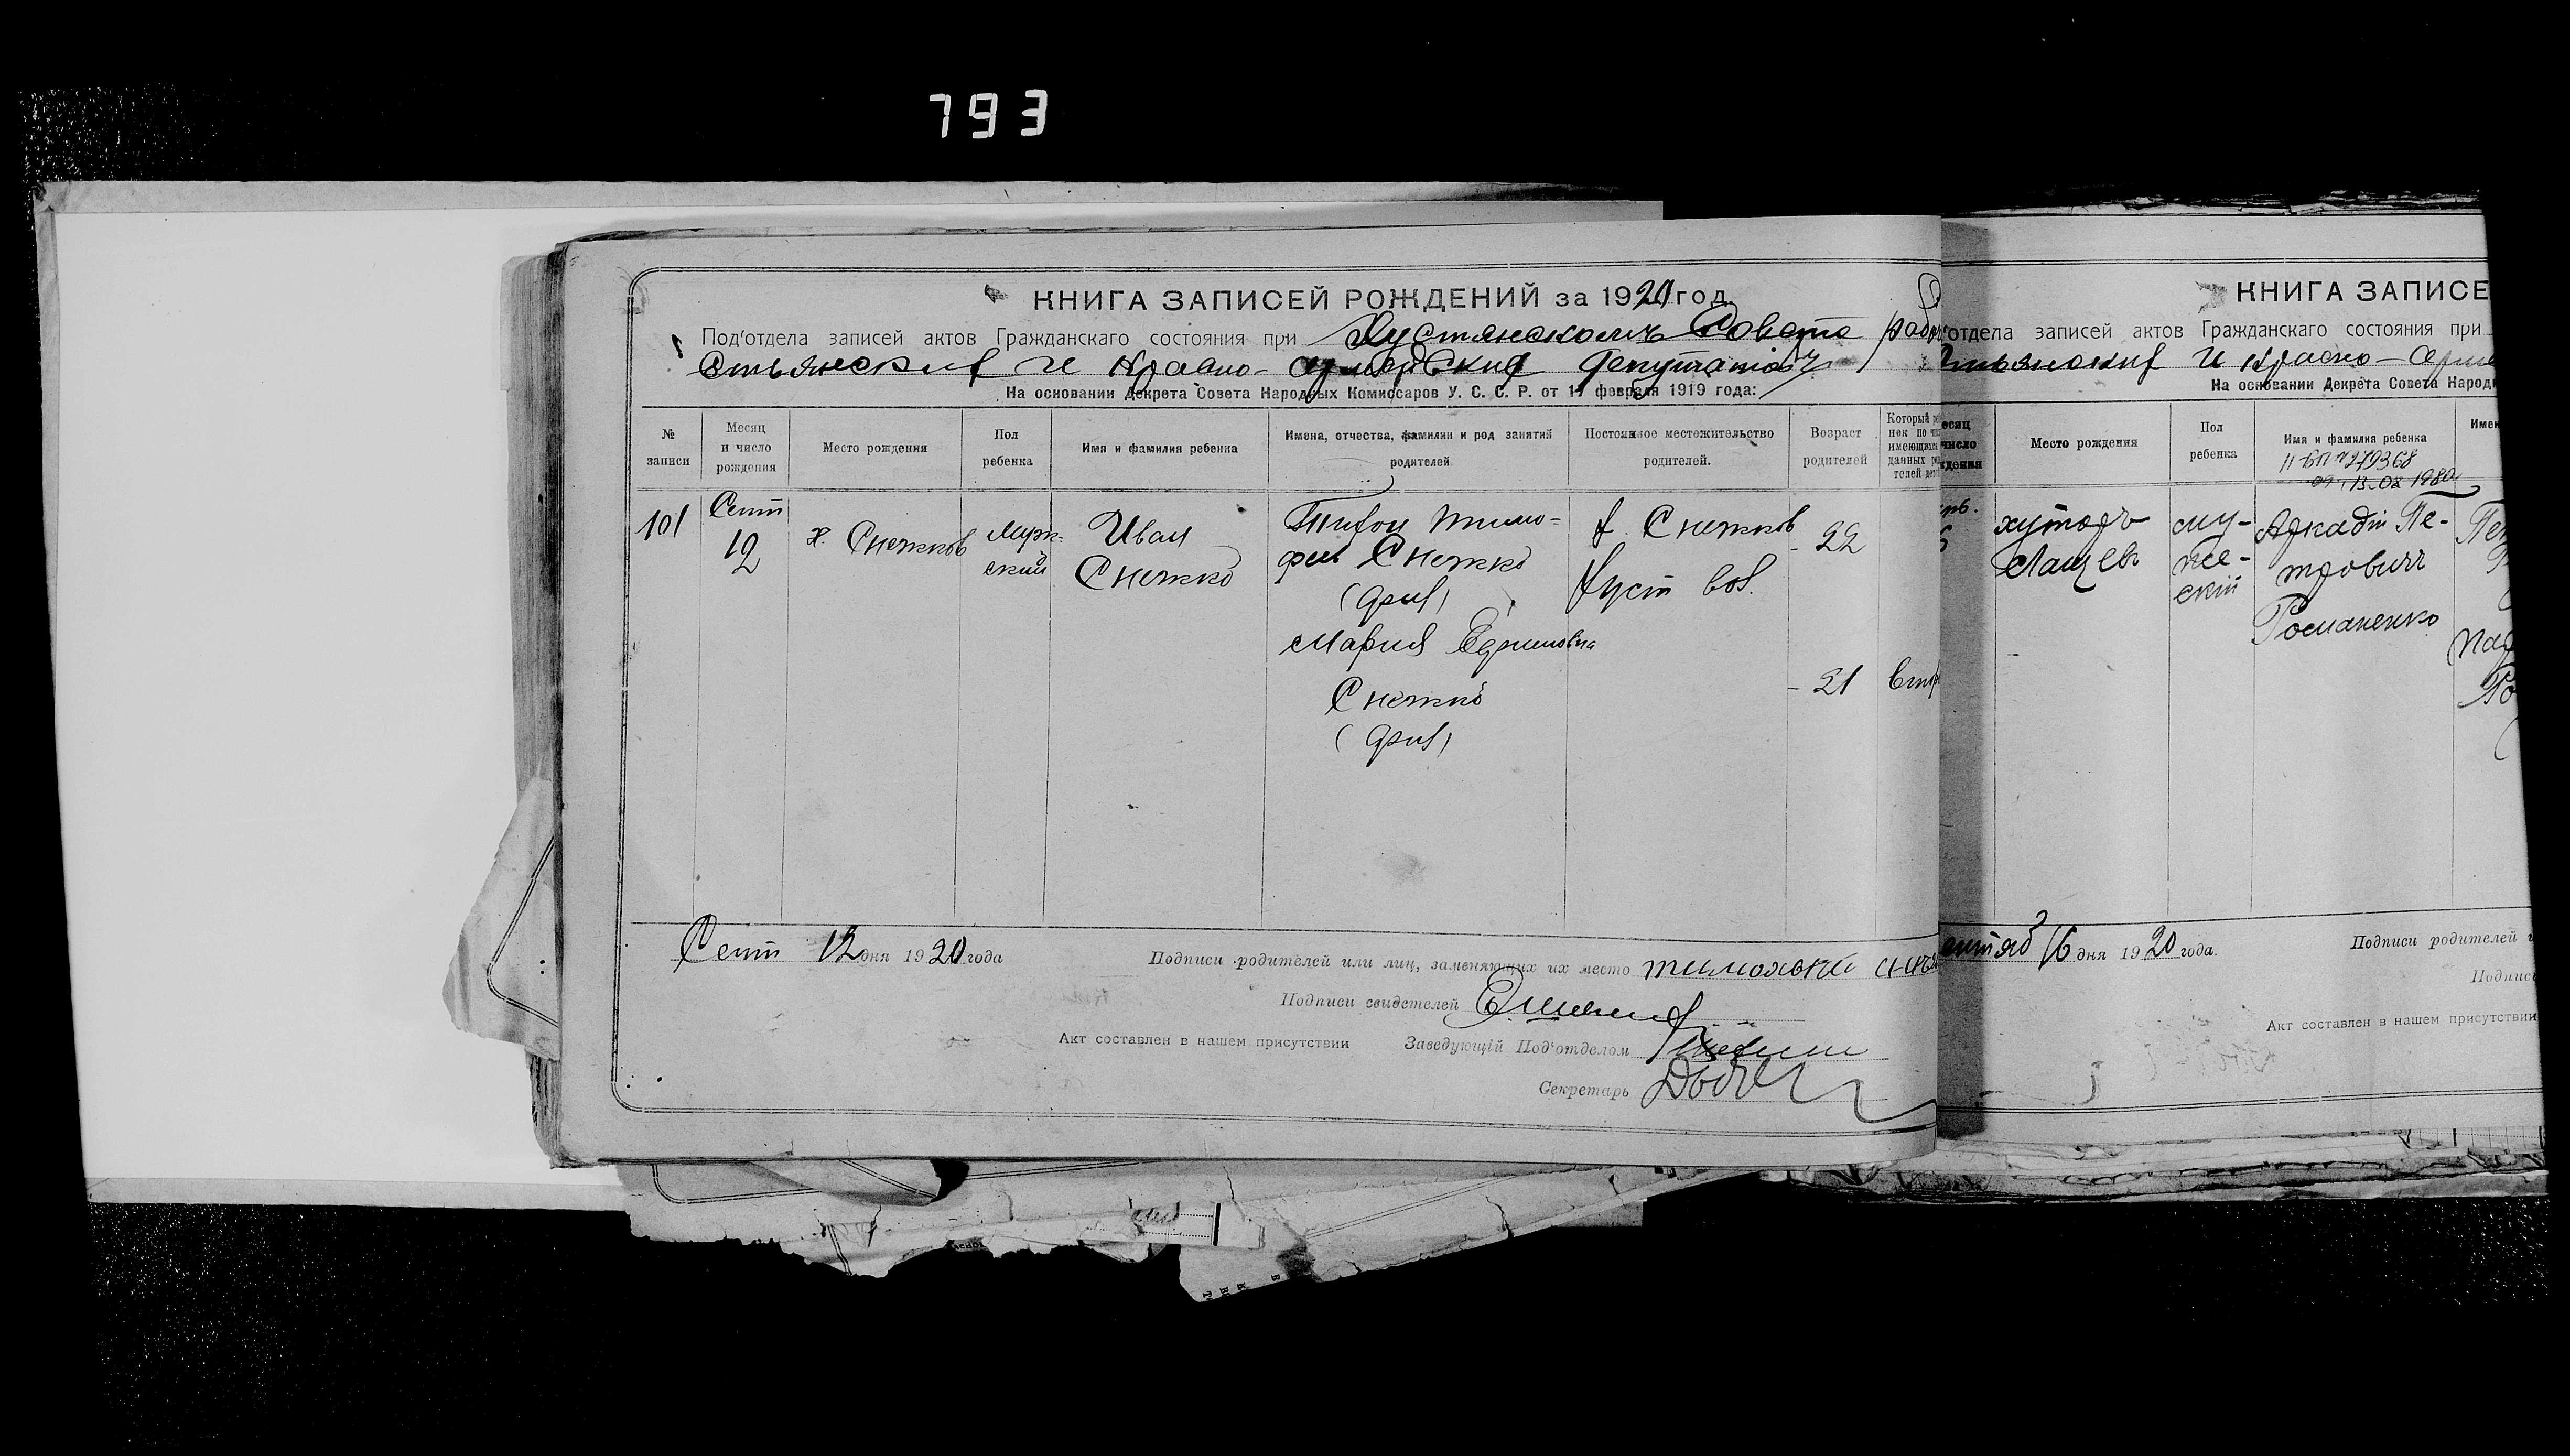 793
КНИГА ЗАПИСЕЙ РОЖДЕНИЙ за 1920 год.
Под'отдела записей актов Гражданскаго состояния при Хустянскомъ Совета рабо
стьянских и Красно-армейских депутатовъ
На основании Декрета Совета Народных Комиссаров У. С. С. Р. от 17 февраля 1919 года:
№ записи
Месяц и число рождения
Место рождения
Пол ребенка
Имя и фамилия ребенка
Имена, отчества, фамилии и род занятий родителей
Постоянное местожительство родителей.
Возраст родителей
Который
нек по
имеющихся
данных
телей
101
Сент
12
х. Снежков
Муж-
ский
Иван
Снежко
Тихон Тимо-
фив Снежко
Мария
Снежко
х. Снежков
Хуст вол.
22
21
Сент 12 дня 1920 года
Подписи родителей или лиц, заменяющих их место
Подписи свидетелей
Акт составлен в нашем присутствии Заведующій Под'отделом
Секретарь
КНИГА ЗАПИСЕ
отдела записей актов Гражданскаго состояния при
стьянских и красно-арме
На основании Декрета Совета Народн
есяц
число
ждения
Место рождения
Пол ребенка
Имя и фамилия ребенка
Имен
279368
13-08 1980
хуторъ
Лащевъ
му-
же-
скій
Аркадій Пе-
тровичъ
Романенко
Пе
16 дня 1920 года.
Подписи родителей и
Подписи
Акт составлен в нашем присутствии